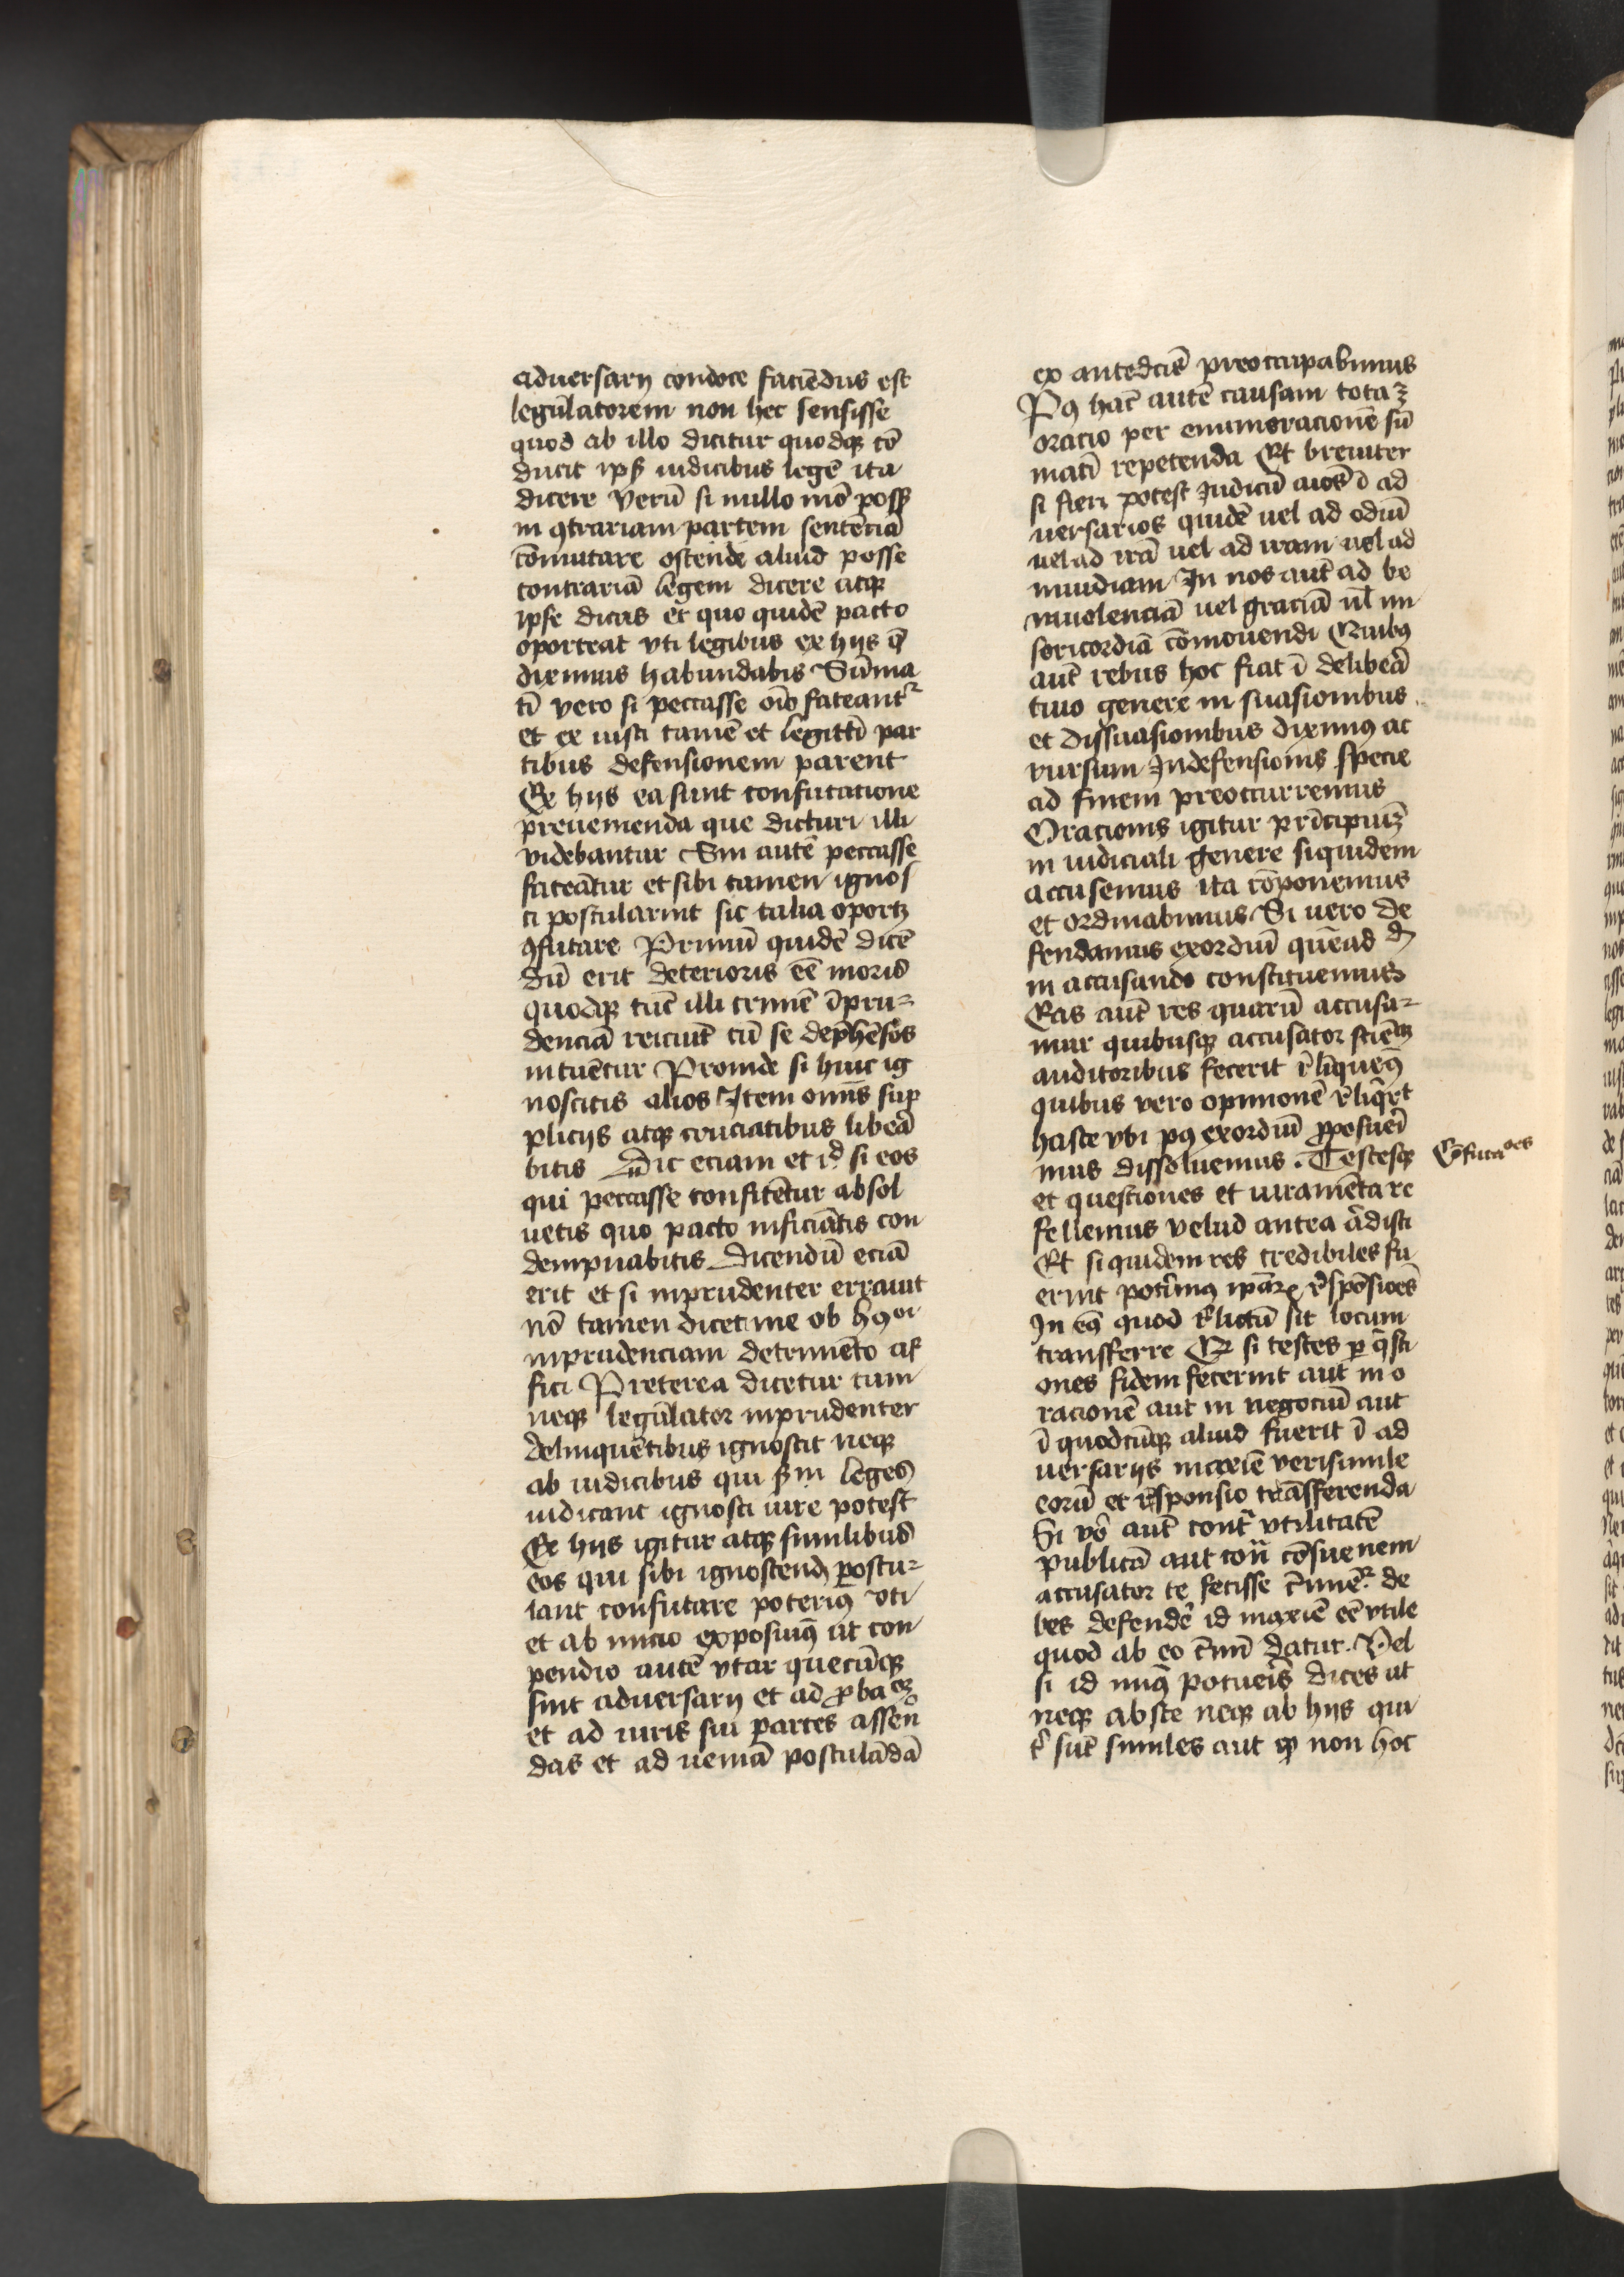 aduersarij condoce faciēdus est
legūlatorem non hec sensisse
quod ab illo dicitur quodqꝫ cō
ducit ipsꝫ iudicibus legē ita
dicere Verū si nullo mō possꝫ
in ꝯtrariam partem sentētiā
cōmutare ostende aliud posse
contrariā legem dicere atqꝫ
ipse dicas et quo quidē pacto
oporteat vti legibus ex hijs q̄
diximus habundabis Sūma
tī vero si peccasse oīo fateantr
et ex iusti tamē et legittī par
tibus defensionem parent
Ex hijs ea sunt confutatione
preuenienda que dicturi illi
videbantur Sin autē peccasse
fateātur et sibi tamen ignos
ci postularint sic talia oportꝫ
ꝯfutare Primū quidē dicē
dū erit deterioris eē moris
quodqꝫ tūc illi crimē īpru-
denciā reiciūt cū se dephēsos
intuētur Proinde si huic ig
noscitis alios Item omīs sup
plicijs atqꝫ cruciatibus liberā
bitis Dic eciam et id si eos
qui peccasse confitētur absol
uetis quo pacto inficiātis con
dempnabitis Dicendū eciā
erit et si inprudenter errauit
nō tamen dicet me ob hꝯoi
inprudenciam detrimēto af
fici Preterea dicetur cum
neqꝫ legūlator inprudenter
delinquētibus ignoscit neqꝫ
ab iudicibus qui ẜm leges
iudicant ignosci iure potest
Ex hijs igitur atqꝫ similibus
eos qui sibi ignoscendꝫ postu-
lant confutare poterimꝯ vti
et ab inicio exposuimꝯ at con
pendio autē vtar quecūqꝫ
sint aduersarij et ad ꝓbaꝫ
et ad iuris sui partes assen
das et ad ueniā postulādā
ex antedcīs preoccupabimus
Pꝯ hac̄ autē causam totaꝫ
oratio per enumeracionē sū
matī repetenda Et breuiter
si fieri potest Iudicū aīos ī ad
uersarios quidē uel ad odiū
uel ad irā uel ad iram uel ad
inuidiam In nos aut̄ ad be
niuolenciā uel graciā ul̄ mi
sericordiā cōmouendi Quibꝯ
aut̄ rebus hoc fiat ī deliberā
tiuo genere in suasionibus
et dissuasionibus diximꝯ ac
rursum In defensionis specie
ad finem preoccurremus
Oracionis igitur prīcipiuꝫ
in iudiciali genere siquidem
accusemus ita cōponemus
et ordinabimus Si uero de
fendamus exordiū quēad d
in accusando constituemus
Eas aut̄ res quarū accusa-
mur quibusqꝫ accusator sciētꝫ
auditoribus fecerit rl̄iquemꝯ
quibus vero opinionē rl̄iqrt
haste vbi pꝯ exordiū ꝓposueri
mus dissoluemus. Testesqꝫ
et questiones et iuramēta re
fellemus velud antea ādisti
Et siquidem res credibiles fu
erint potīmꝯ ipāꝝ rn̄spōsiōes
In eꝯ quod rl̄ictū sit locum
transferre Et si testes ꝑ q̄sti
ones fidem fecerint aut in o
racionē aut in negociū aut
ī quodcūqꝫ aliud fuerit ī ad
uersarijs maxiē verisimile
eorū et responsio trāsferenda
Si vō aut̄ contr̄ vtilitatē
publicā aut con̄ cōsuenem
accusator te fecisse crimē de
bes defendē id maxiē eē vtile
quod ab eo crīmī datur. Vel
si id minꝯ potueris dices at
neqꝫ abs te neqꝫ ab hijs qui
sūt similes aut ꝙ non hoc
Cōfutacoēs